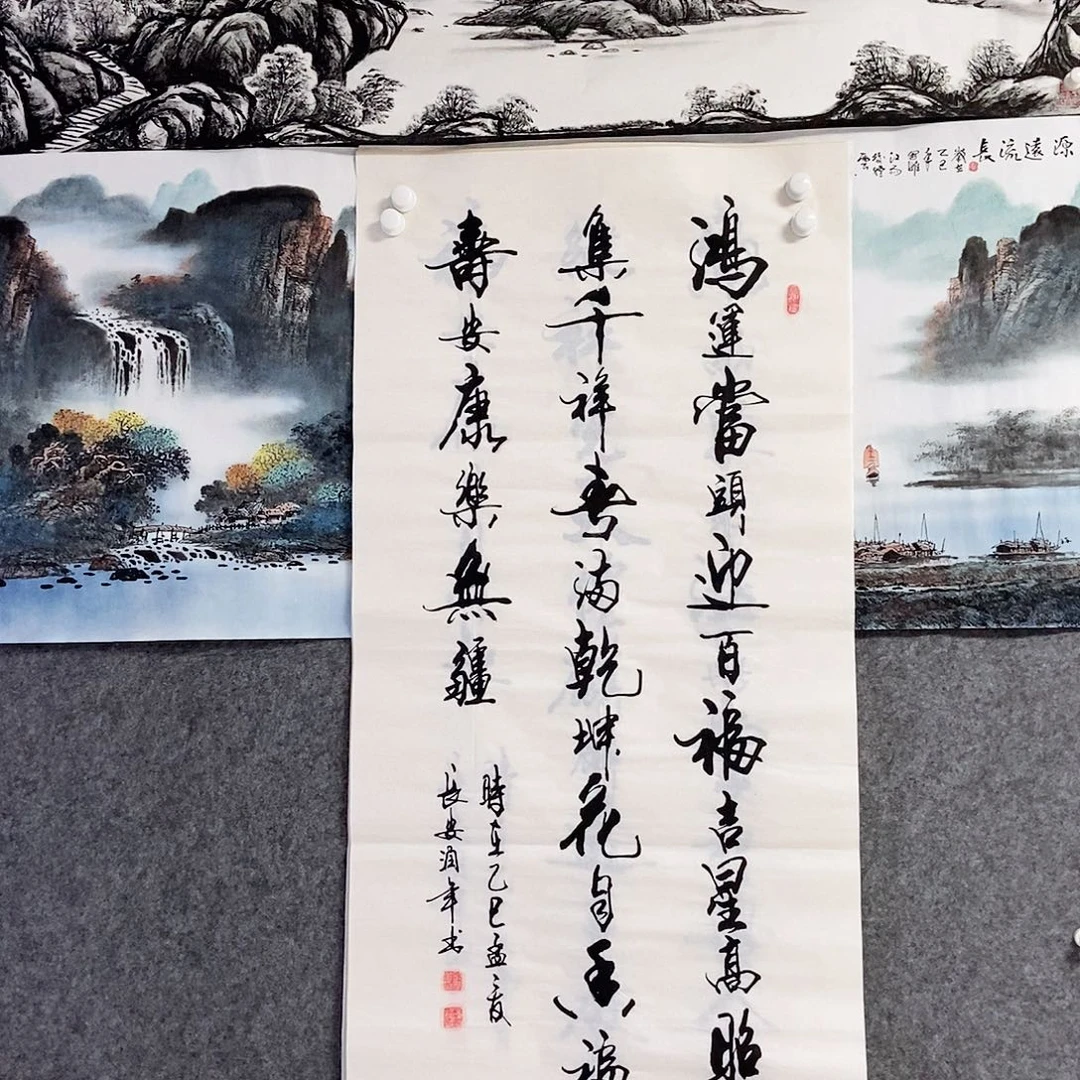 鴻運當頭迎百福吉星高照
集千祥春滿乾坤花自香福
壽安康樂無疆
時在乙巳孟夏
長安润年书
源遠流長